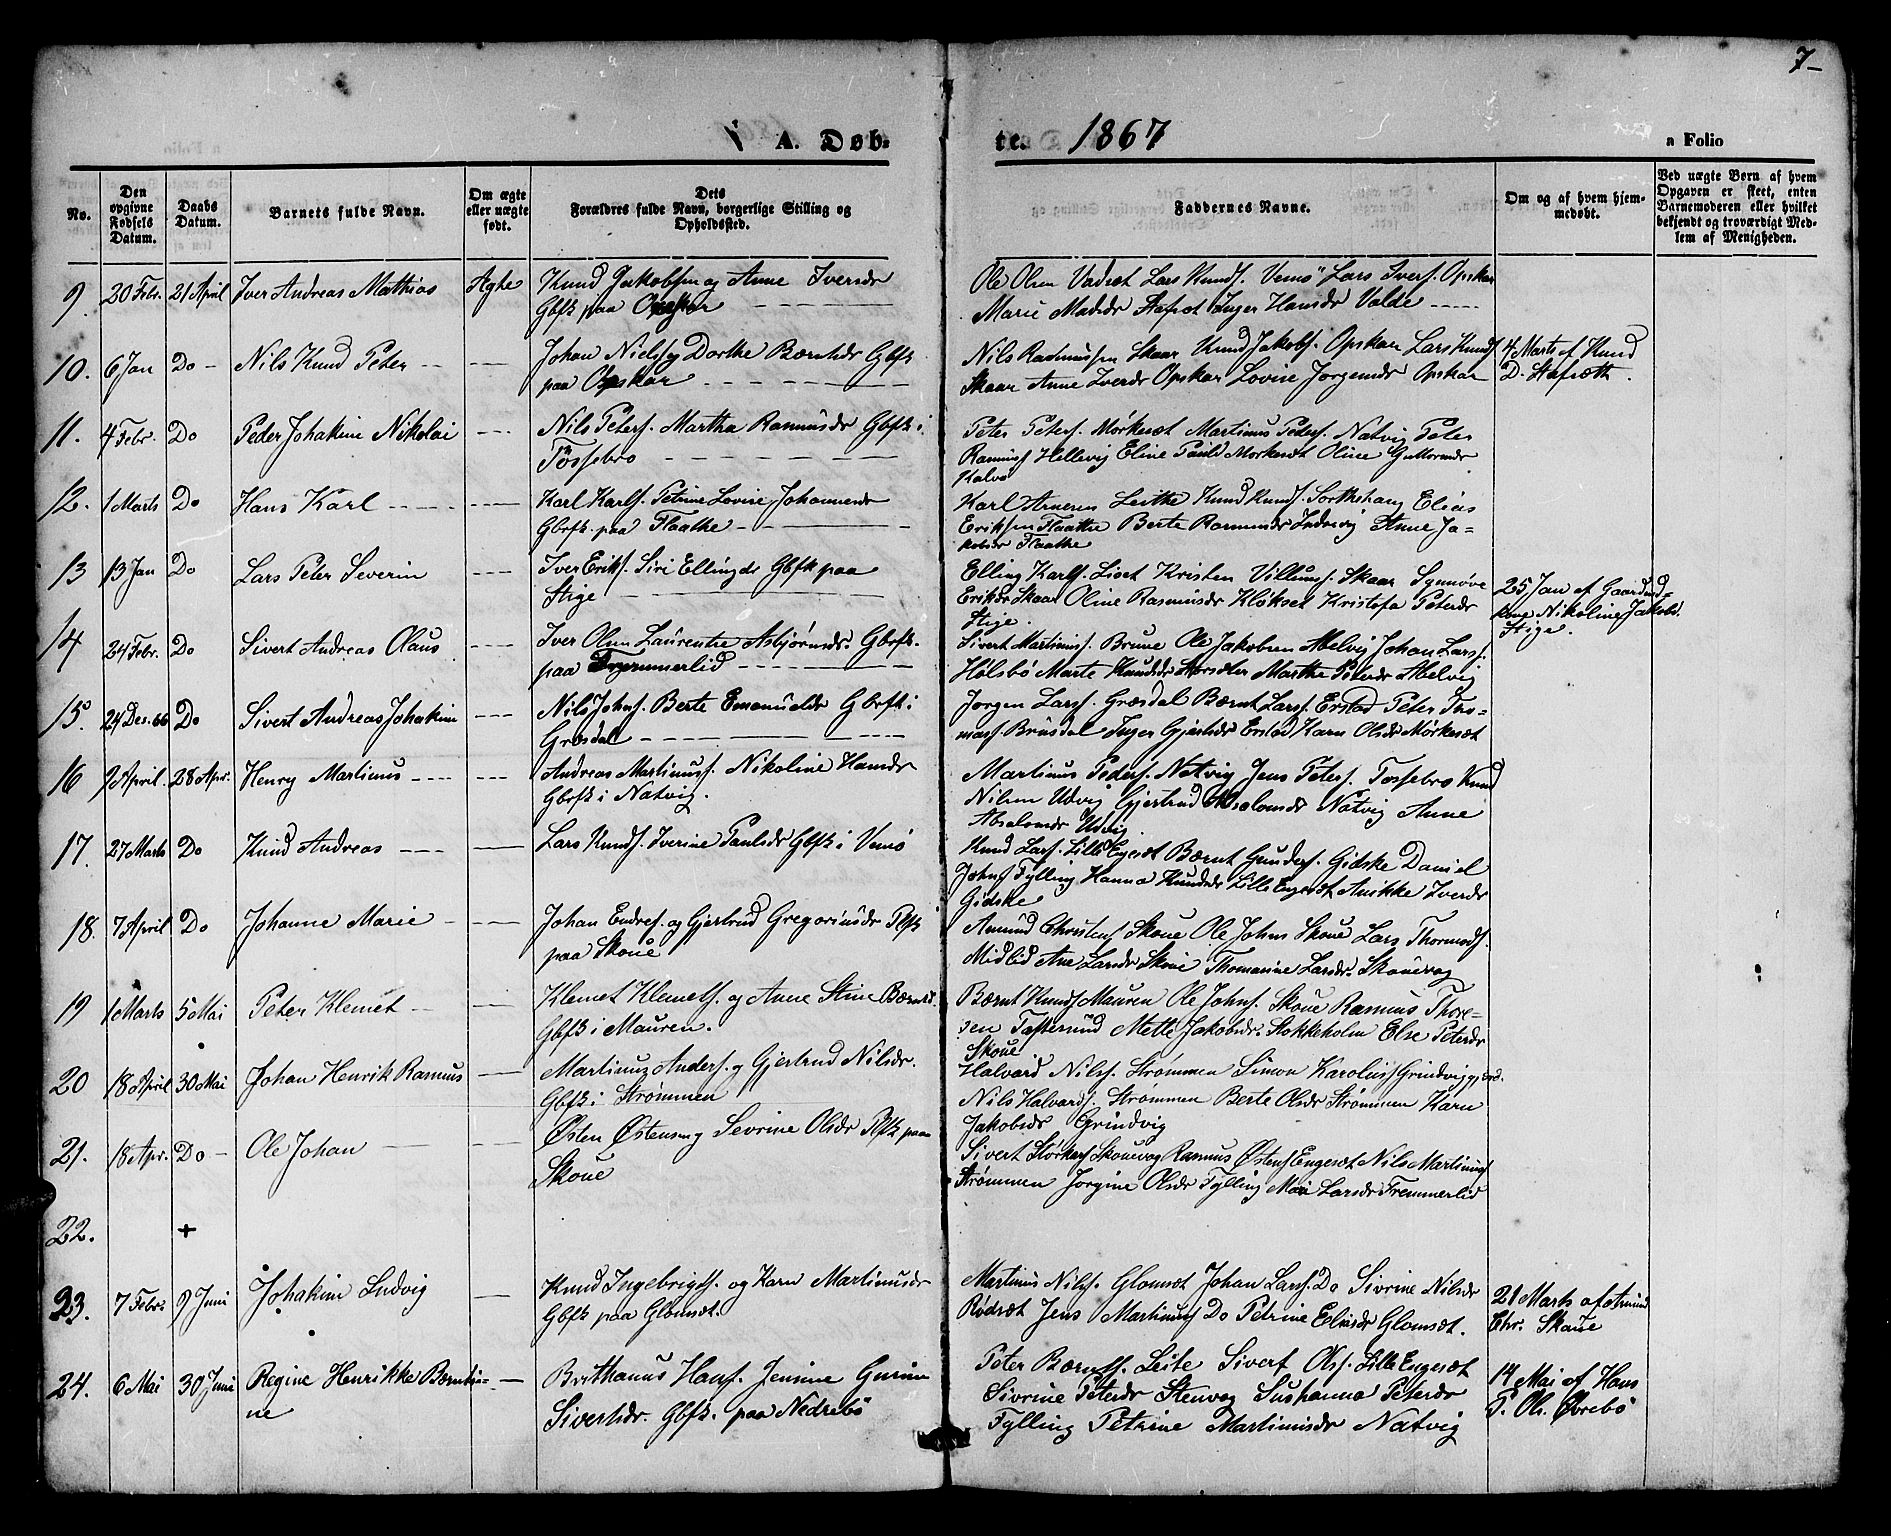 7-
A. Døb-
te. 1867
a Folio
No.
Den opgivne Fødsels Datum.
Daabs Datum.
Barnets fulde Navn.
Om ægte eller uægte født.
Dets Forældres fulde Navn, borgerlige Stilling og Opholdssted.
Faddernes Navne.
Om og af hvem hjemmedøbt.
Ved uægte Børn af hvem Opgaven er skeet, enten Barnemoderen eller hvilket bekjendt og troværdigt Medlem af Menigheden.
9. 20 Febr. 21 April Iver Andreas Mathias Ægte Knud Jakobsen og Anne Iversdr
Gbfk paa Opskar
Ole Olsen Vadsæt Lars Knuds. Vemø Lars Ivers. Opskar
Marie Madsdr Stafset Inger Hansdr Valde
10. 6 Jan Do - Nils Knud Peter Johan Niels. og Dorthe Bærntsdr Gbfk
paa Opskar
Nils Rasmussen Skaar Knud Jakobs. Opskar Lars Knuds
Skaar Anne Iversdr Opskar Lovise Jorgensdr Opskar
4 Marts af Knud
D. Stafsætt.
11. 4 Febr. Do Peder Johakim Nikolai Nils Peters. Martha Rasmusdr Gbfk i
Tøssebro
Peter Peters. Mørkesæt Martinus Peders. Natvig Peter
Rasmuss Hellevig Eline Paulsd Morkesæt Oline Guttormsdr
Kalvø
12. 1 Marts Do Hans Karl Karl Karls. Petrine Lovise Johannesdr
Gbrfk. paa Flaathe
Karl Arnesen Leithe Knud Knuds. Sorthehaug Elias
Eriksen Flaathe Berte Rasmusdr Indrevig Anne Ja-
kobsdr Flaathe
13 13 Jan Do Lars Peter Severin Iver Eriks. Siri Ellingsdr Gbfk paa
Stige
Elling Karls. Liset Kristen Villums. Skaar Synnøve
Eriksdr Skaar Oline Rasmusdr Kløkset Kristofa Petersdr
Stige.
25 Jan af Gaardmd-
kone Nikoline Jakobsd.
Stige.
14 24 Febr. Do Sivert Andreas Olaus Iver Olsen Laurentse Asbjørnsdr. Gbrfk.
paa Fremmerlid
Sivert Martinus. Brune Ole Jakobsen Abelvig Johan Lars.
Holsbø Marte Knudsdr Storsæter Marthe Petersdr Abelvig
15 24 Des. 66 Do Sivert Andreas Johakim Nils Johns. Berte Emanuelsdr Gbrfk i
Græsdal
Jorgen Lars. Græsdal Bærnt Lars. Erstad Peter Tho-
mas. Brusdal Inger Gjertsdr Erstad Karn Olsdr Mørkesæt
16 9 April. 28 Apr. Henry Martinus Andreas Martinuss. Nikoline Hansdr
Gbrfk i Natvig.
Martinus Peders. Natvig Jens Peters. Tossebro Knud
Nilsen Udvig Gjertrud Absalomsdr Natvig Anne
Absalomsdr Udvig.
17. 27 Marts Do Knud Andreas Lars Knuds. Iverine Paulsdr Gbfk i Vemø
Knud Lars. Lille Engesæt Bærnt Gunders. Gidske Daniel
Johns Fylling Hanna Knudsdr Lille Engesæt Anikke Iversdr
Gidske
18. 7 April Do Johanne Marie Johan Endres. og Gjertrud Gregoriusdr Plfk
paa Skoue
Amund Christens Skoue Ole Johns Skoue Lars Thormods.
Midlid Ane Larsdr Skoue Thomasine Larsdr. Skouevag
19 1 Marts 5 Mai Peter Klemet Klemet Klemets. og Anne Stine Bærntsd.
Gbfk i Mauren.
Bærnt Knuds Mauren Ole Johns. Skoue Rasmus Thore-
sen Taftesund Mette Jakobsdr. Stokkeholm Else Petersdr
Skoue
20 18 April 30 Mai Johan Henrik Rasmus Martinus Anders. og Gjertrud Nilsdr.
Gbfk i Strømmen
Halvard Nilss. Strømmen Simon Karolius Grindvig
Nils Halvards. Strømmen Berte Olsdr Strømmen Karn
Jakobsdr Grindvig
21. 18 Apr. Do - Ole Johan Østen Østensen og Sevrine Olsdr Plfk paa
Skoue
Sivert Størkers Skouevag Rasmus Østens Engesæt Nils Martinus
Strømmen Jorgine Olsdr Fylling Mari Larsdr Fremmerlid
22. +
23. 7 Febr. 9 Juni Johakim Ludvig Knud Ingebrigts. og Karn Martinusdr
Gbfk paa Glomsæt.
Martinus Nilss. Glomsæt Johan Lars. Do Sivrine Nilsdr
Rødsæt Jens Martinuss Do Petrine Eliasdr Glomsæt.
21 Marts af Amund
Chr. Skoue
24. 6 Mai 30 Juni Regine Henrikke Bærnti-
ne
Brithanus Hans. Jensine Gurine
Sivertsdr. Gbfk. paa Nedrebø
Peter Bærnts. Leite Sivert Ols. Lille Engesæt
Sivrine Petersdr Stenvag Sushanna Petersdr
Fylling Petrine Martinusdr Natvig
14 Mai af Hans
P. Ols. Øvrebø